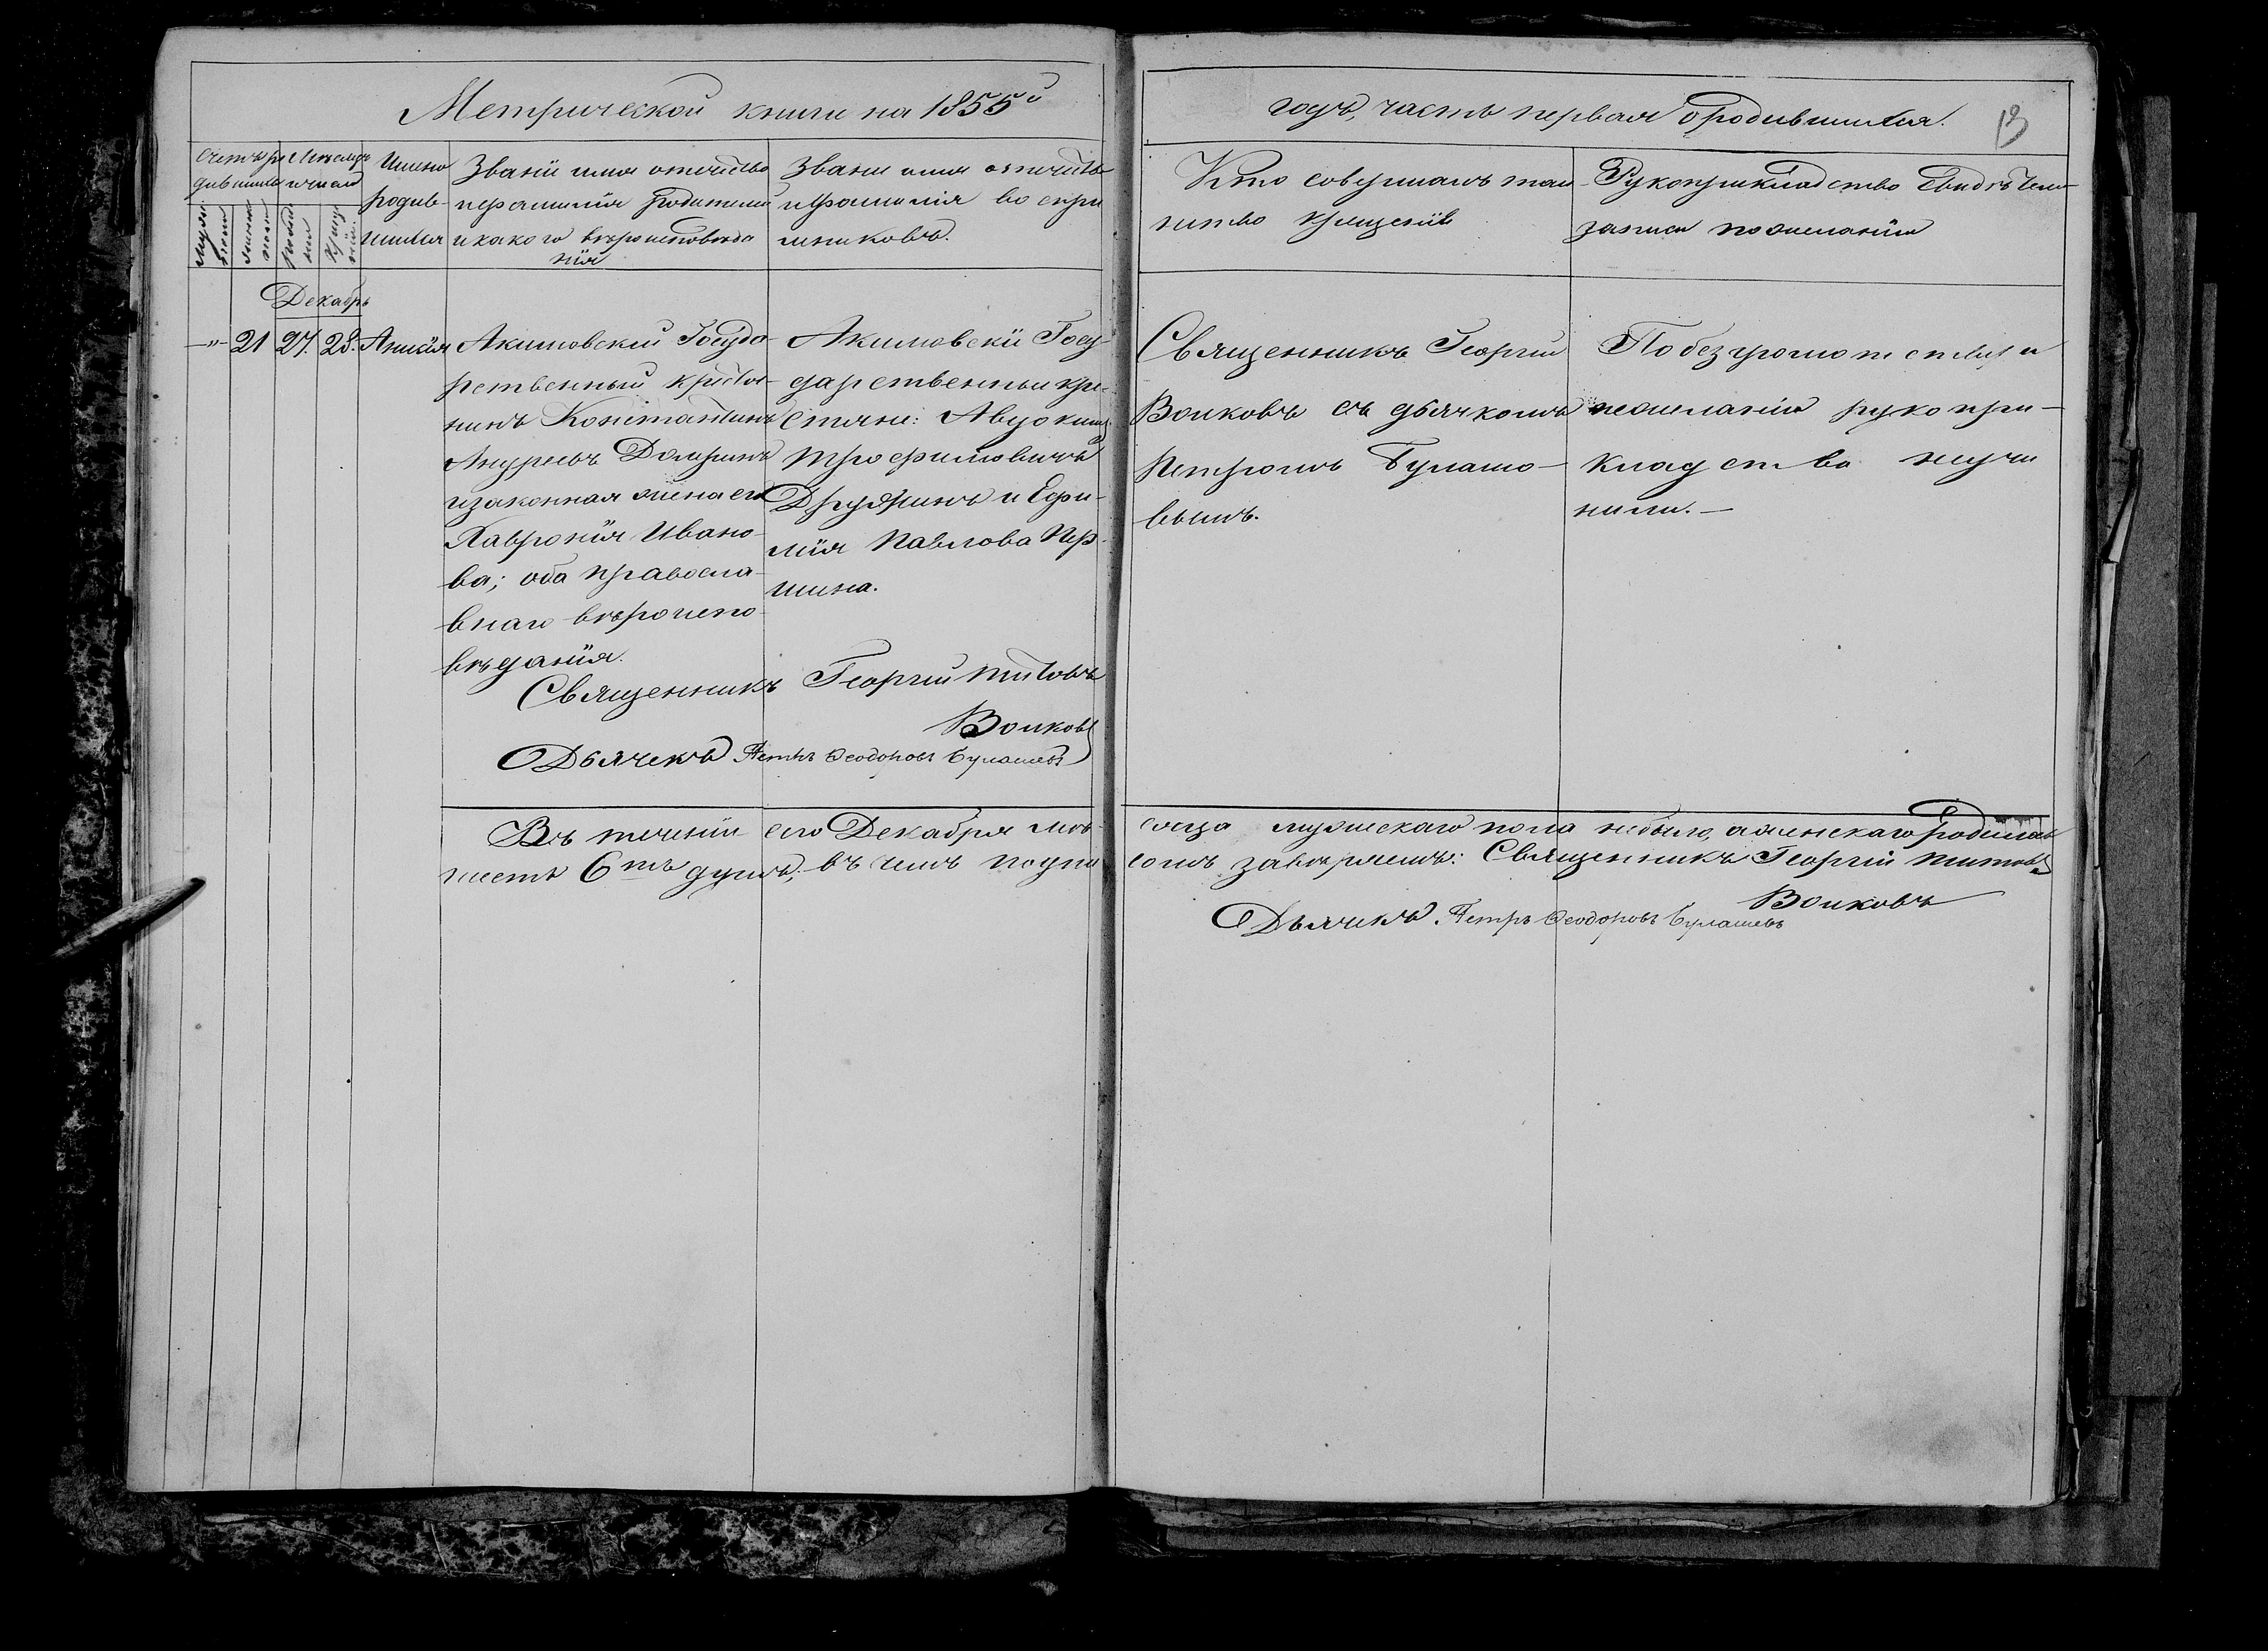 Метрической книги на 1855й
годъ, часть первая о родившихся.
13
Счетъ ро
дившихся
Мѣсяцъ
и число
Имена
родив-
шихся
Званіе имя отечество
и фамилія родителей
и какого вѣроисповѣда
нія
Званіе имя отечество
и фамилія воспрі
емниковъ.
Кто совершалъ таи-
нство крещенія
Рукоприкладство свидѣтелей
записи по желанію
Декабрь
—"— 21 27. 28. Анисія
Акимовскій Госуда-
рственный крестья-
нинъ Константинъ
Андреевъ Домринъ
и законная жена его
Хавронія Ивано-
ва; оба православ-
внаго вѣроиспо-
вѣданія.
Акимовскіе Госу-
дарственныи кре-
стяне: Авдокимъ
Трофимовичъ
Дружинъ и Ефи-
мія Павлова Пер-
шина.
Священникъ Георгій
Волковъ съ дьячкомъ
Петромъ Булашо-
вымъ.
По безграмотству и
нежеланію рукопри-
кладства неучи
нили.—
Священникъ Георгій Титовъ
Волковъ
Дьячекъ Петръ Ѳеодоровъ Булашевъ
Въ теченіи сего Декабря мѣ-
сяца мужескаго пола небыло, а женскаго родилось
шесть 6ть душъ; въ чемъ подпи
сомъ завѣряемъ: Священникъ Георгій Титовъ
Волковъ
Дьячекъ. Петръ Ѳеодоровъ Булашевъ